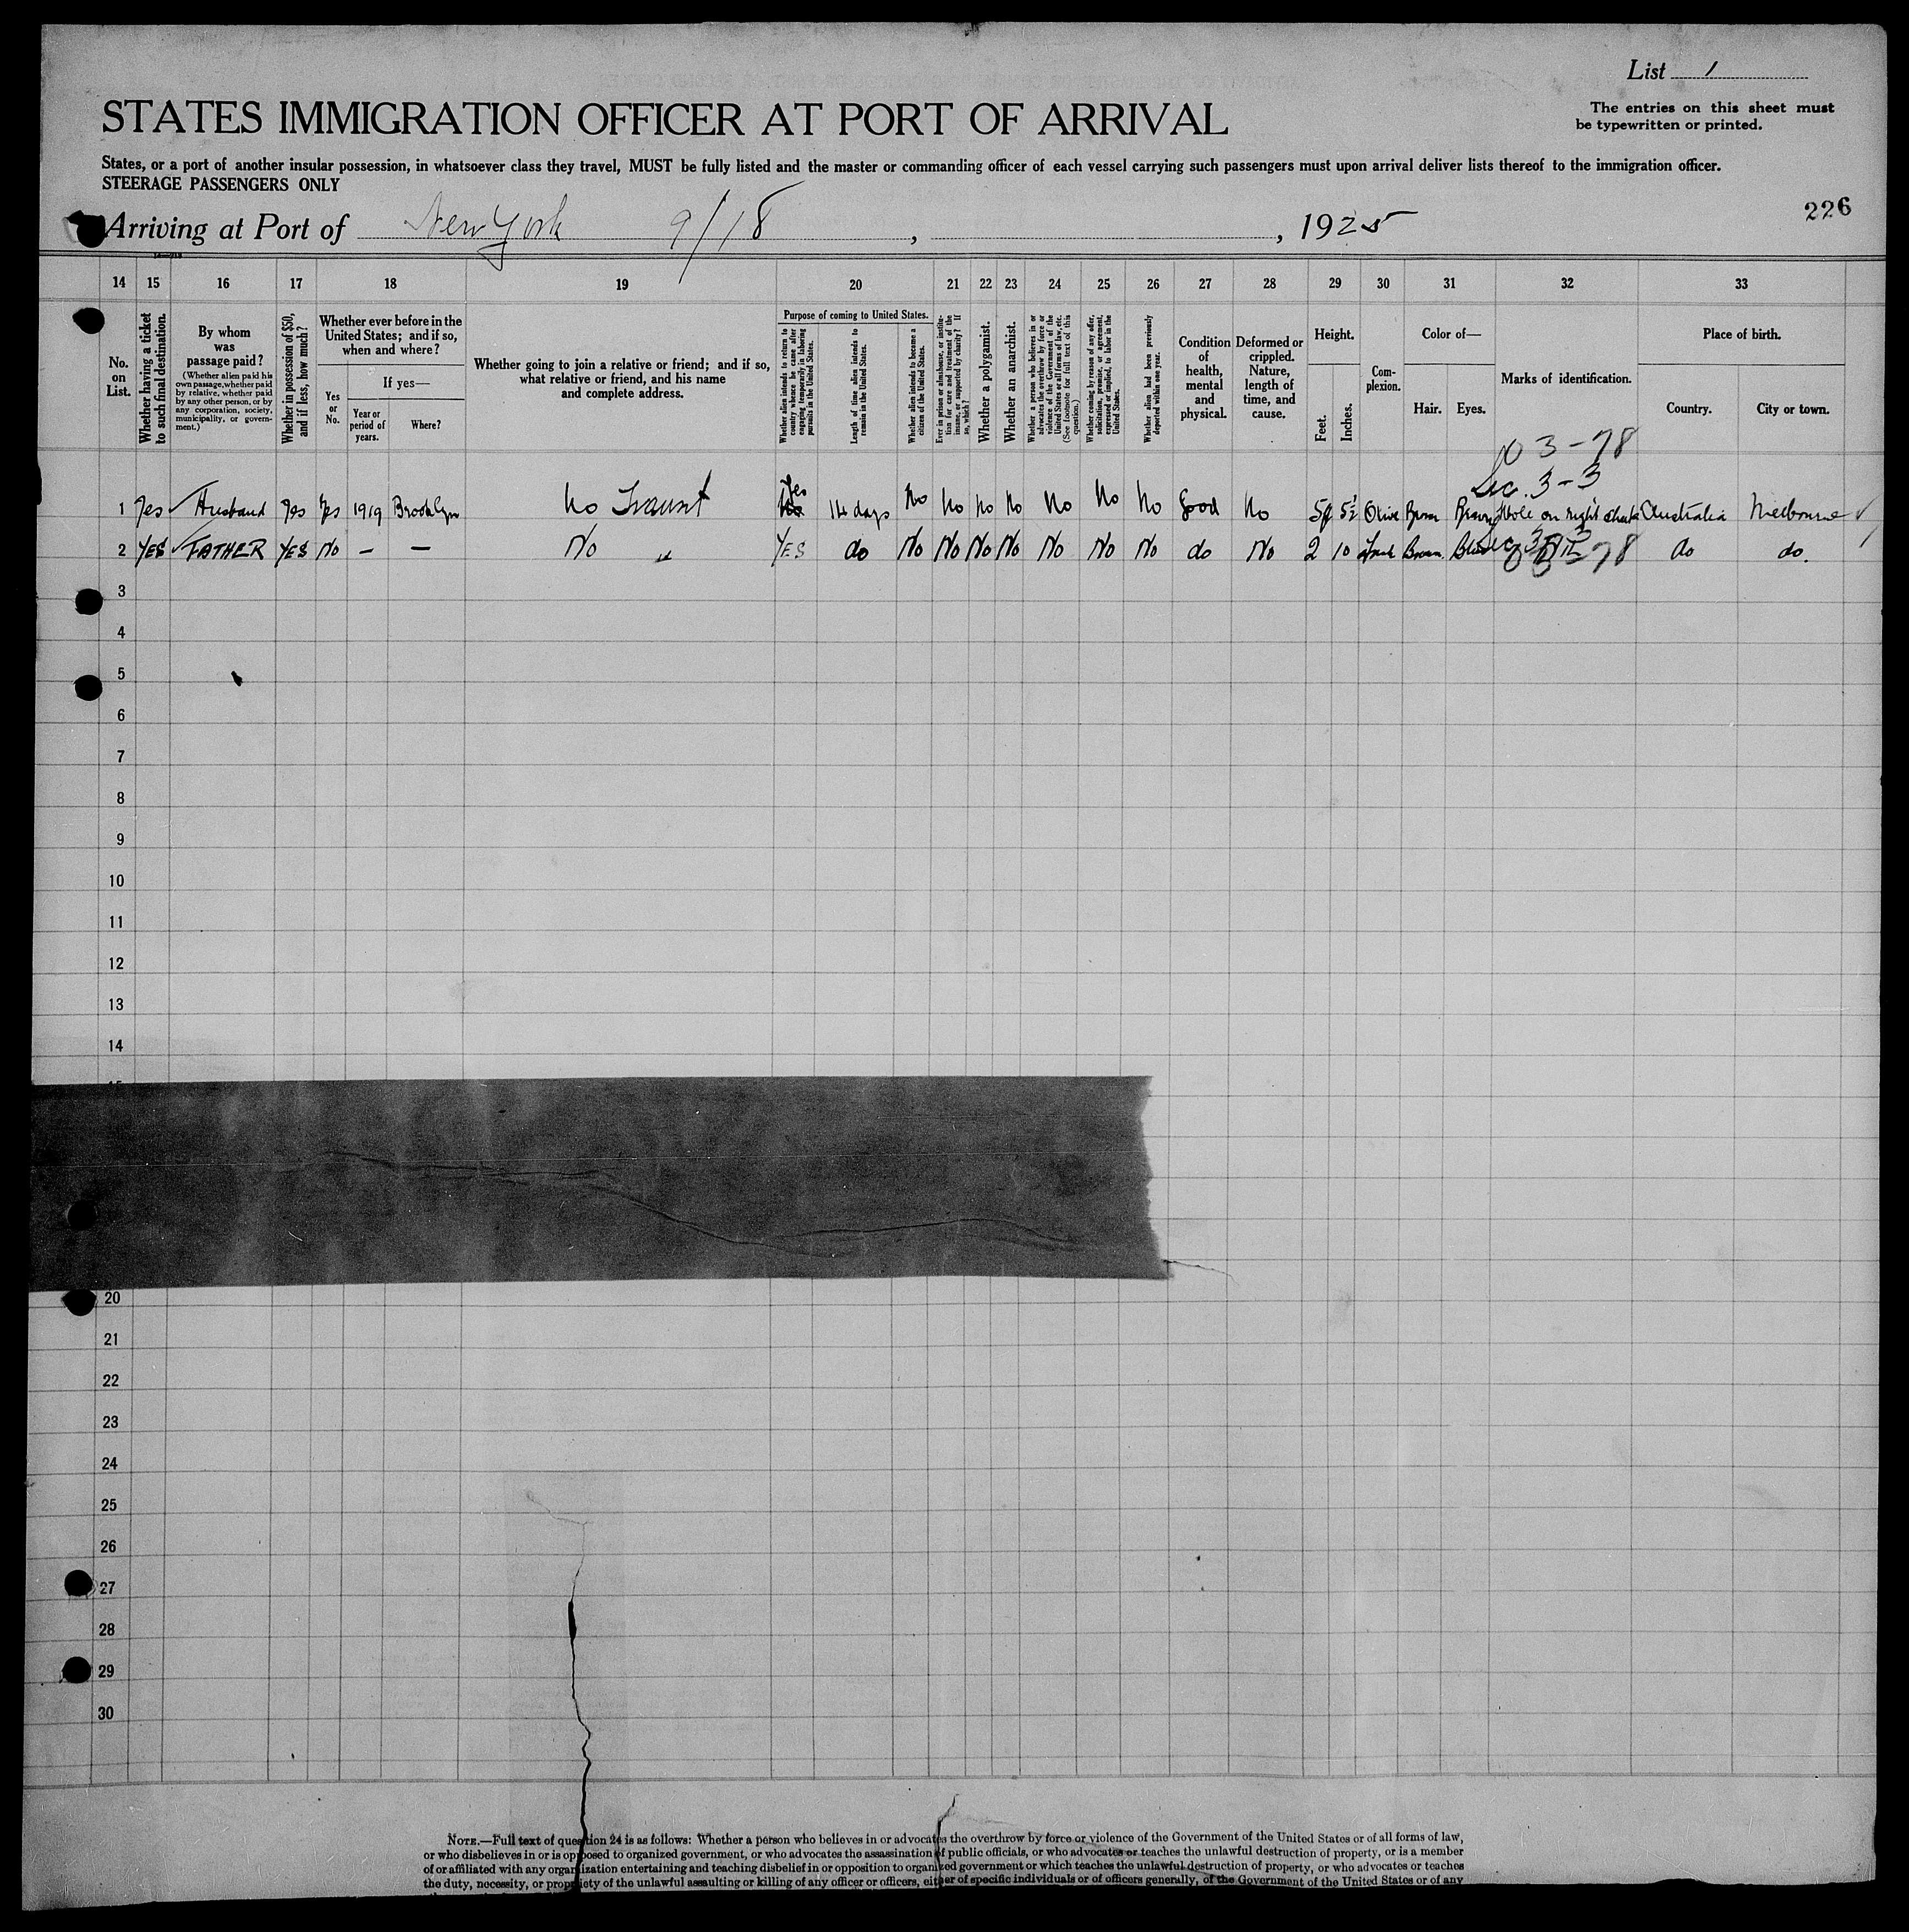 List 1
The entries on this sheet must
be typewritten or printed.
STATES IMMIGRATION OFFICER AT PORT OF ARRIVAL
States, or a port of another insular possession, in whatsoever class they travel, MUST be fully listed and the master or commanding officer of each vessel carrying such passengers must upon arrival deliver lists thereof to the immigration officer.
STEERAGE PASSENGERS ONLY
226
Arriving at Port of New York 9/18 , , 1925
14 15 16 17 18 19 20 21 22 23 24 25 26 27 28 29 30 31 32 33
No.
on
List.
Whether having a ticket
to such final destination.
By whom
was
passage paid?
(Whether alien paid his
own passage, whether paid
by relative, whether paid
by any other person, or by
any corporation, society,
municipality, or govern-
ment.)
Whether in possession of $50,
and if less, how much?
Whether ever before in the
United States; and if so,
when and where?
Yes
or
No.
If yes—
Year or
period of
years.
Where?
Whether going to join a relative or friend; and if so,
what relative or friend, and his name
and complete address.
Purpose of coming to United States.
Whether alien intends to return to
country whence he came after
engaging temporarily in laboring
pursuits in the United States.
Length of time alien intends to
remain in the United States.
Whether alien intends to become a
citizen of the United States.
Ever in prison or almshouse, or institu-
tion for care and treatment of the
insane, or supported by charity? If
so, which?
Whether a polygamist.
Whether an anarchist.
Whether a person who believes in or
advocates the overthrow by force or
violence of the Government of the
United States or all forms of law, etc.
(See footnote for full text of this
question.)
Whether coming by reason of any offer,
solicitation, promise, or agreement,
expressed or implied, to labor in the
United States.
Whether alien had been previously
deported within one year.
Condition
of
health,
mental
and
physical.
Deformed or
crippled.
Nature,
length of
time, and
cause.
Height.
Feet.
Inches.
Com-
plexion.
Color of—
Hair.
Eyes.
Marks of identification.
Place of birth.
Country.
City or town.
03-78
Sec. 3-3
Yes
1 Yes Husband Yes Yes 1919 Brooklyn No Transit 14 days No No No No No No No Good No 5 5½ Olive Brown Brown Mole on right cheek Australia Melbourne
2 YES FATHER YES No – – No " YES do No No No No No No No do No 2 10 Brown Sec 3-78 do do.
3
4
5
6
7
8
9
10
11
12
13
14
20
21
22
23
24
25
26
27
28
29
30
NOTE.—Full text of question 24 is as follows: Whether a person who believes in or advocates the overthrow by force or violence of the Government of the United States or of all forms of law,
or who disbelieves in or is opposed to organized government, or who advocates the assassination of public officials, or who advocates or teaches the unlawful destruction of property, or is a member
of or affiliated with any organization entertaining and teaching disbelief in or opposition to organized government or which teaches the unlawful destruction of property, or who advocates or teaches
the duty, necessity, or propriety of the unlawful assaulting or killing of any officer or officers, either of specific individuals or of officers generally, of the Government of the United States or of any